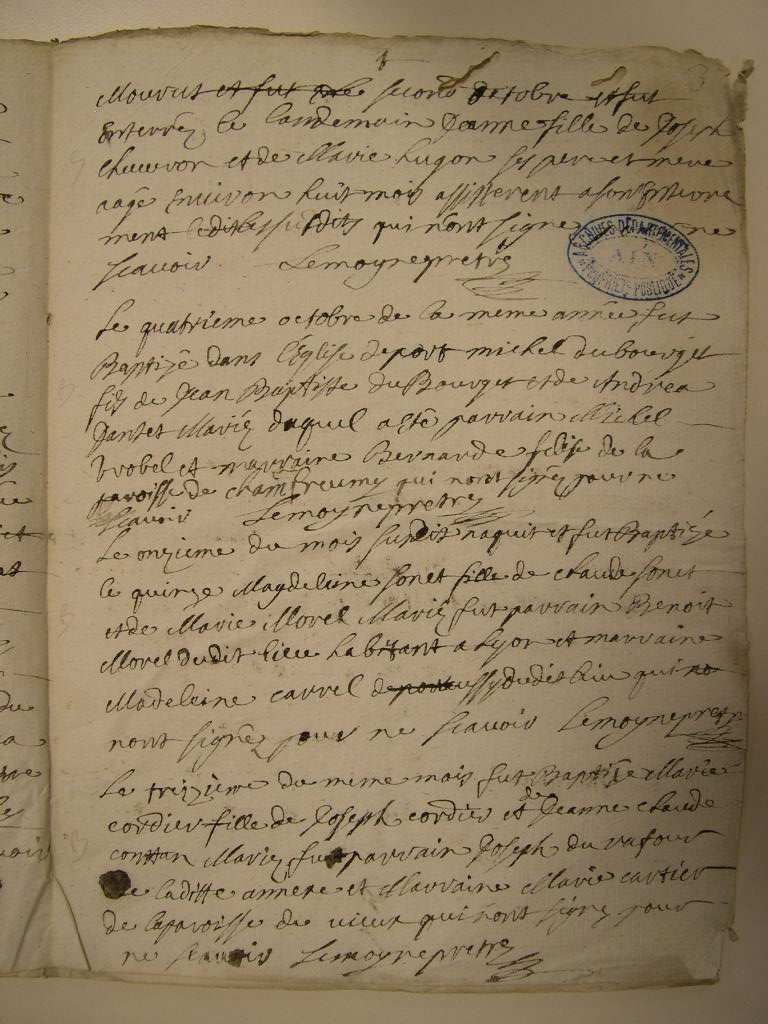 3
Mourut et fut le second octobre et fut
Enterréz le landemain Jeanne fille de Joseph
et de Marie hugon ses pere et mere
aagé Environ huit mois assisterent a son Enterre
ment lesdits susdits qui n'ont signe ne
scavoir Lemoyne pretre
ARCHIVES DÉPARTEMENTALES
AIN
PROPRIÉTÉ PUBLIQUE
Le quatrieme octobre de la meme année fut
Baptizé dans l'Eglise de port michel du bourget
fils de Jean Baptiste du Bourget et de Andrea
Jantet Mariéz duquel a esté parrain Michel
trobel et marraine Bernarde de la
paroisse de qui n'ont signéz pour ne
scavoir Lemoyne pretre
Le onzieme du mois susdit naquit et fut Baptizée
le quinze Magdeleine sonet fille de claude sonet
et de Marie Morel Mariéz fut parrain Benoit
Morel dudit lieu habitant a Lyon et marraine
Madeleine carrel de port aussy dudit lieu qui no
n'ont signéz pour ne scavoir Lemoyne pretre
Le treizieme du meme mois fut Baptizée Marie
cordier fille de Joseph cordier et de Jeanne claude
contan Mariéz fut parrain Joseph du rafour
de laditte annexe et Marraine Marie cartier
de la paroisse du vieux qui n'ont signéz pour
ne scavoir Lemoyne pretre